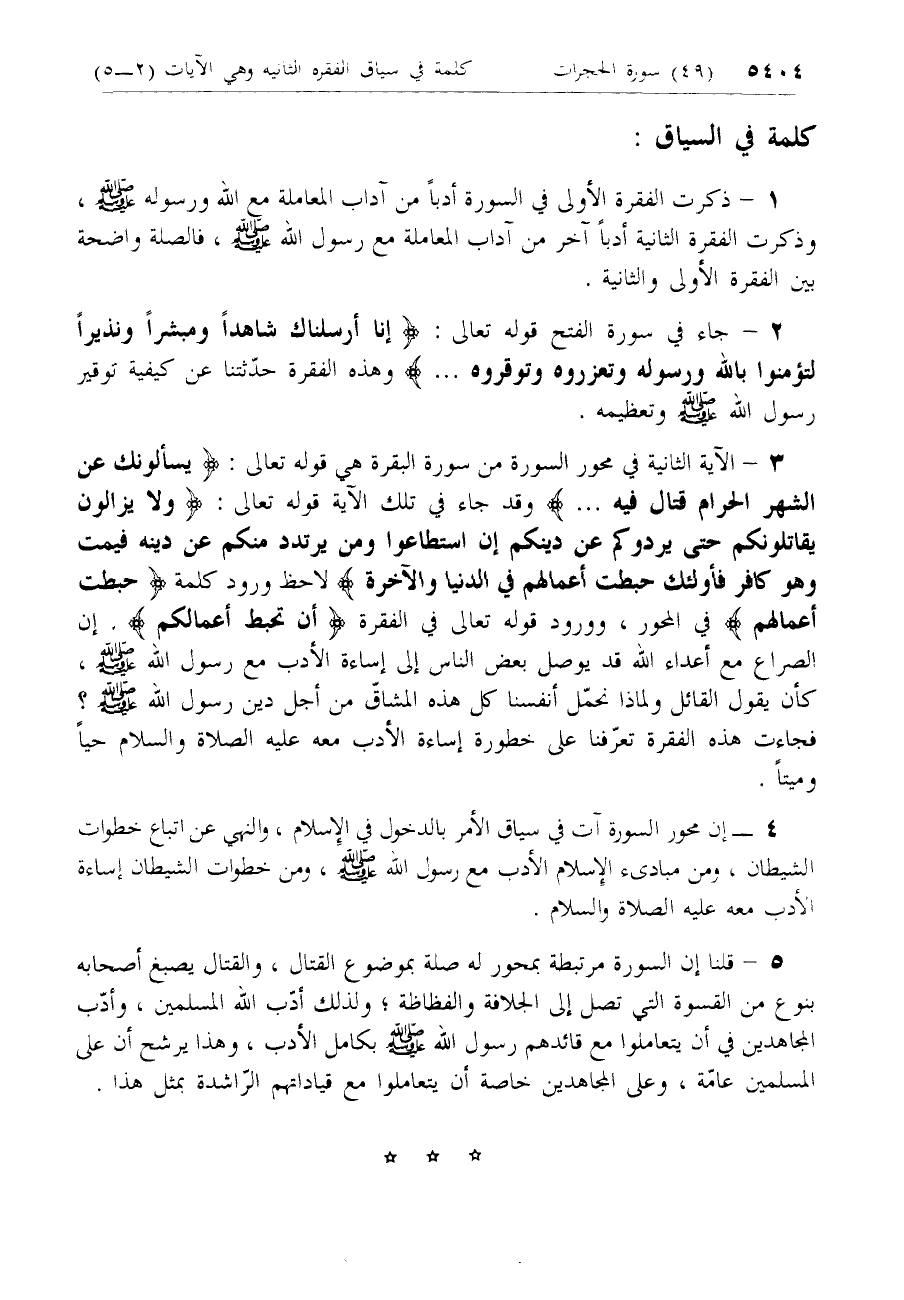 ٥٤٠٤ (٤٩) سورة الحجرات كلمة في سياق الفقره الثانيه وهي الآيات (٢ــ٥)
كلمة في السياق :
١ – ذكرت الفقرة الأولى في السورة أدباً من آداب المعاملة مع الله ورسوله ﷺ ،
وذكرت الفقرة الثانية أدباً آخر من آداب المعاملة مع رسول الله ﷺ ، فالصلة واضحة
بين الفقرة الأولى والثانية .
٢ – جاء في سورة الفتح قوله تعالى : ﴿ إنا أرسلناك شاهداً ومبشراً ونذيراً
لتؤمنوا بالله ورسوله وتعزروه وتوقروه ... ﴾ وهذه الفقرة حدّثتنا عن كيفية توقير
رسول الله ﷺ وتعظيمه .
٣ – الآية الثانية في محور السورة من سورة البقرة هي قوله تعالى : ﴿ يسألونك عن
الشهر الحرام قتال فيه ... ﴾ وقد جاء في تلك الآية قوله تعالى : ﴿ ولا يزالون
يقاتلونكم حتى يردوكم عن دينكم إن استطاعوا ومن يرتدد منكم عن دينه فيمت
وهو كافر فأولئك حبطت أعمالهم في الدنيا والآخرة ﴾ لاحظ ورود كلمة ﴿ حبطت
أعمالهم ﴾ في المحور ، وورود قوله تعالى في الفقرة ﴿ أن تحبط أعمالكم ﴾ . إن
الصراع مع أعداء الله قد يوصل بعض الناس إلى إساءة الأدب مع رسول الله ﷺ ،
كأن يقول القائل ولماذا نحمّل أنفسنا كل هذه المشاقّ من أجل دين رسول الله ﷺ ؟
فجاءت هذه الفقرة تعرّفنا على خطورة إساءة الأدب معه عليه الصلاة والسلام حياً
وميتاً .
٤ ــ إن محور السورة آت في سياق الأمر بالدخول في الإسلام ، والنهي عن اتباع خطوات
الشيطان ، ومن مبادىء الإسلام الأدب مع رسول الله ﷺ ، ومن خطوات الشيطان إساءة
الأدب معه عليه الصلاة والسلام .
٥ – قلنا إن السورة مرتبطة بمحور له صلة بموضوع القتال ، والقتال يصبغ أصحابه
بنوع من القسوة التي تصل إلى الجلافة والفظاظة ؛ ولذلك أدّب الله المسلمين ، وأدّب
المجاهدين في أن يتعاملوا مع قائدهم رسول الله ﷺ بكامل الأدب ، وهذا يرشح أن على
المسلمين عامّة ، وعلى المجاهدين خاصة أن يتعاملوا مع قياداتهم الرّاشدة بمثل هذا .
☆ ☆ ☆